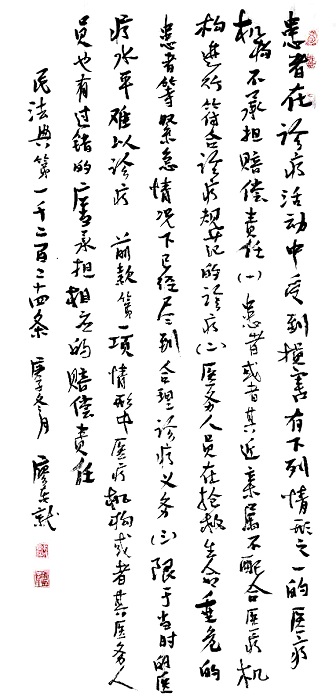 患者在诊疗活动中受到损害有下列情形之一的医疗
机构不承担赔偿责任(一)患者或者其近亲属不配合医疗机
构进行符合诊疗规范的诊疗(二)医务人员在抢救生命垂危的
患者等紧急情况下已经尽到合理诊疗义务(三)限于当时的医
疗水平难以诊疗 前款第一项情形中医疗机构或者其医务人
员也有过错的应当承担相应的赔偿责任
民法典第一千二百二十四条 庚子冬月 廖